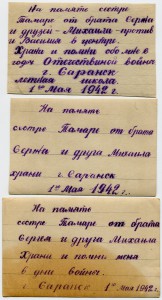 На память сестре
Тамаре от брата Сержа
и друзей - Михаила - против
и Василия в центре.
Храни и помни обо мне в
годы Отечественной войны
г. Саранск
летная школа.
1ое Мая 1942 г.
На память
сестре Тамаре от брата
Сержа и друга Михаила
храни г. Саранск
1ое Мая 1942 г.
На память
сестре Тамаре от брата
Сергея и друга Михаила
Храни и помни меня
в дни войны.
г. Саранск 1ое Мая 1942 г.